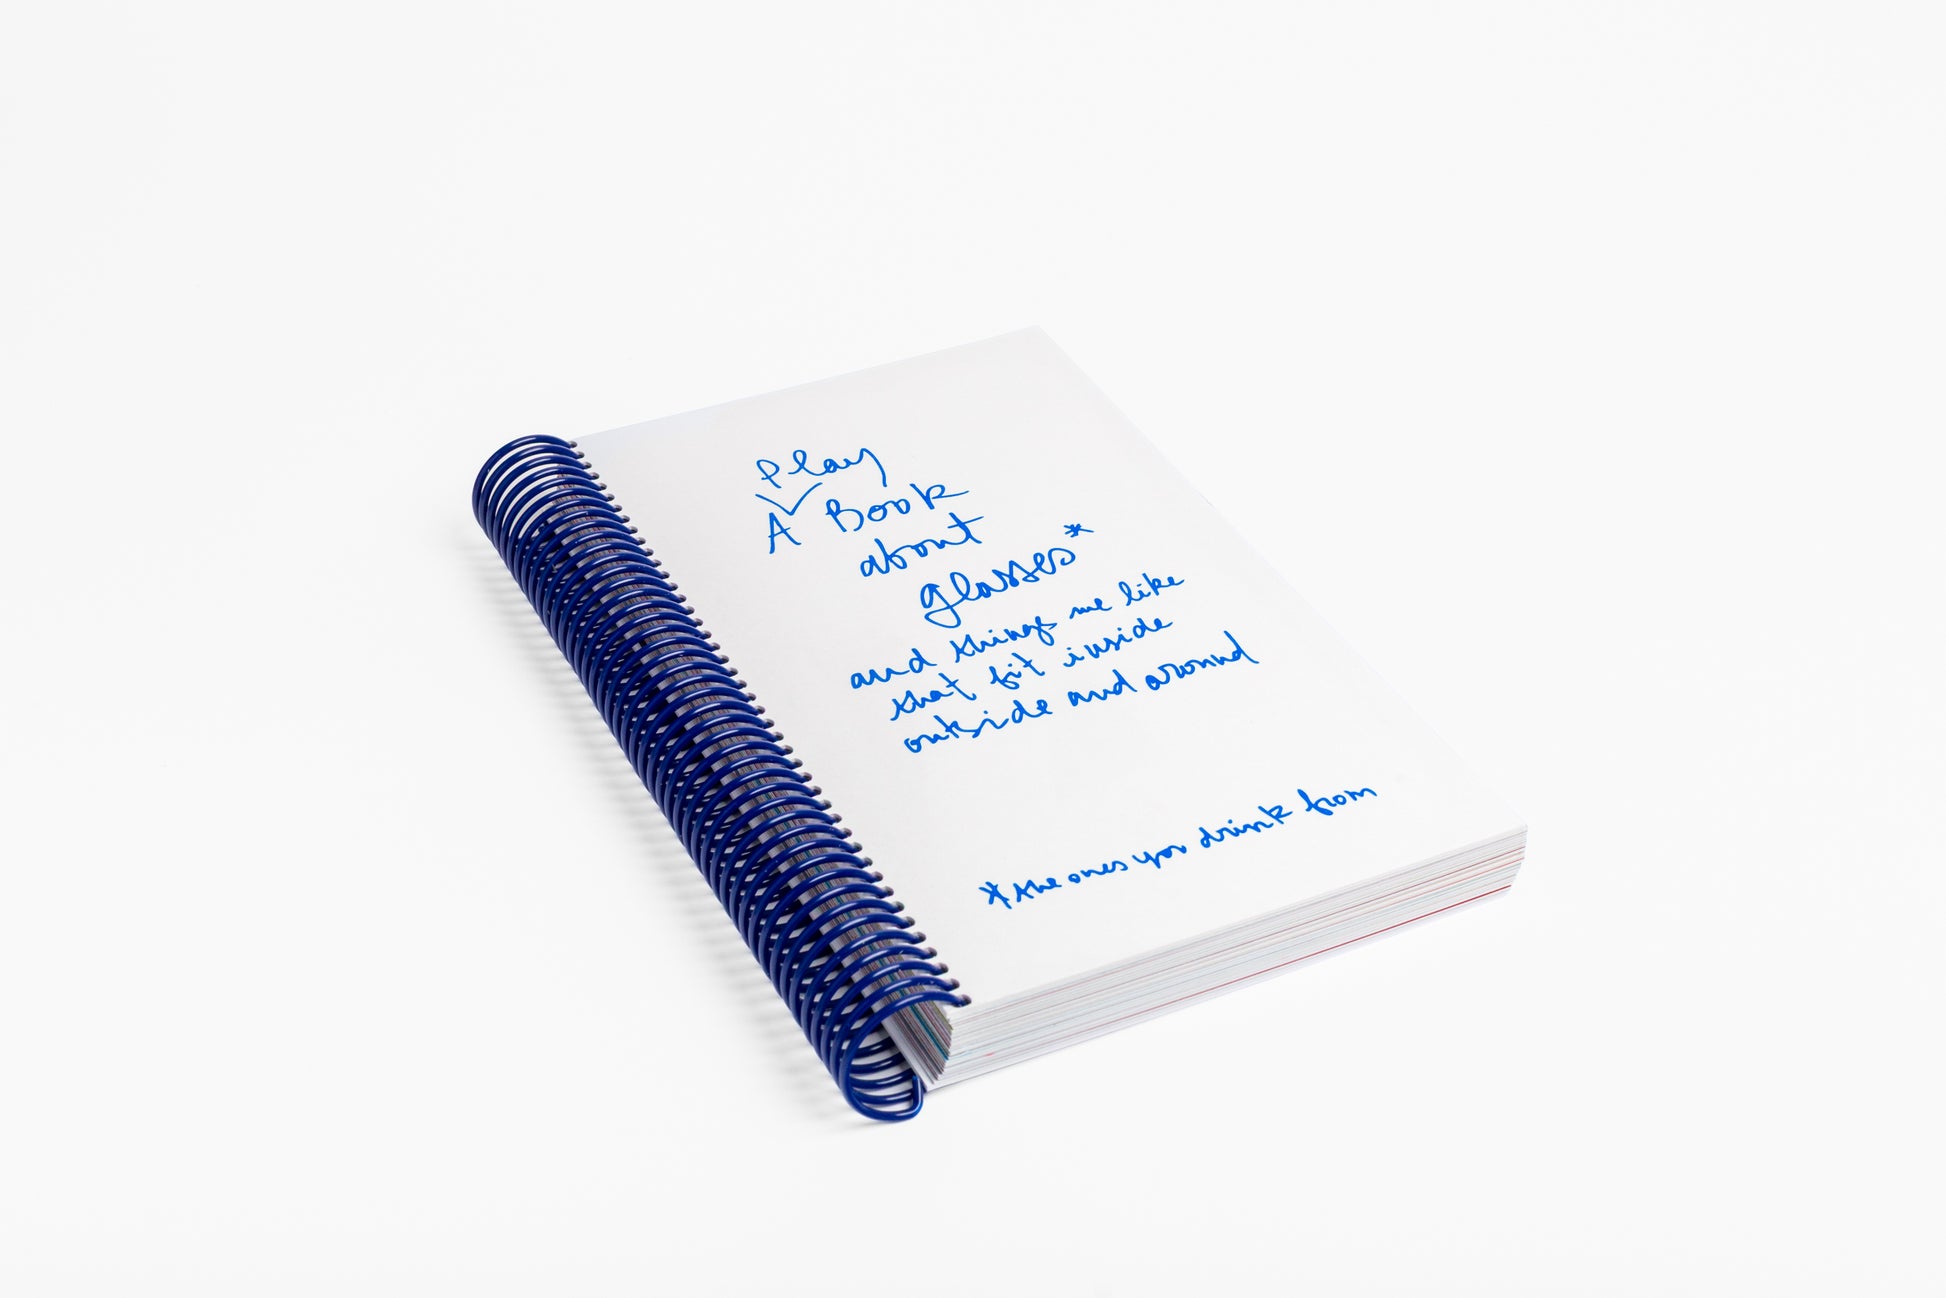 Play
A Book
about
glasses*
and things we like
that fit inside
outside and around
*the ones you drink from